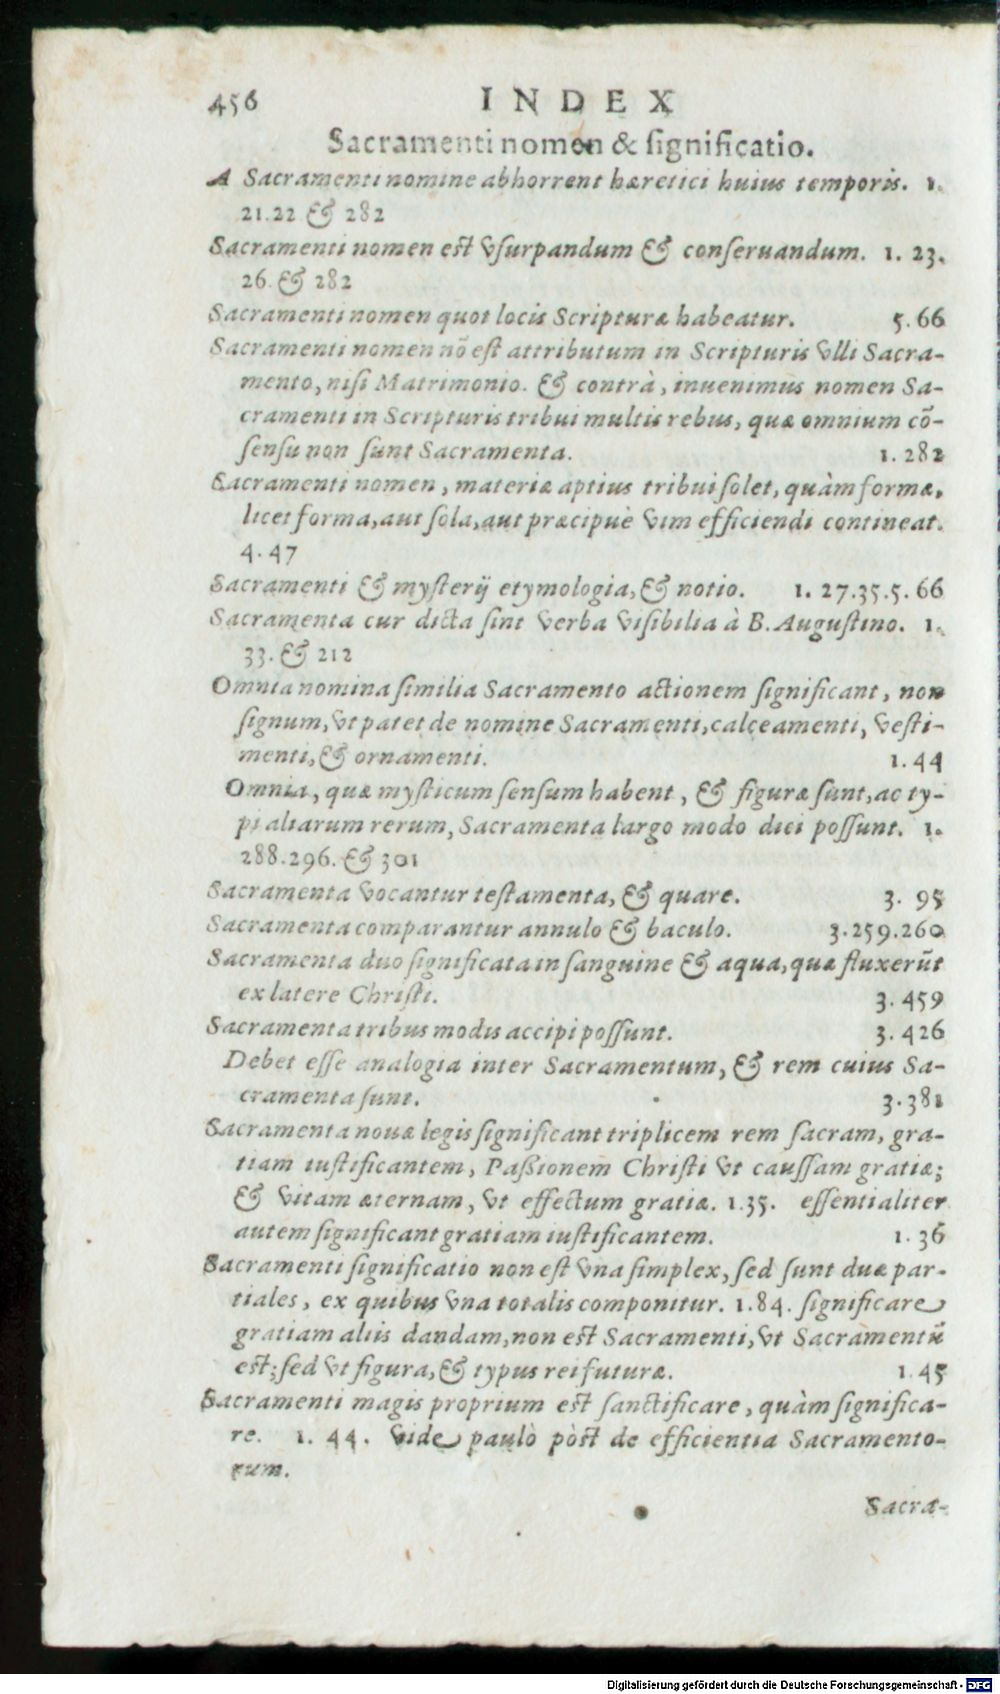 456 INDEX
Sacramenti nomen & significatio.
A Sacramenti nomine abhorrent hæretici huius temporis. 1.
21.22 & 282
Sacramenti nomen est vsurpandum & conseruandum. 1. 23.
26. & 282
Sacramenti nomen quot locis Scripturæ habeatur. 5.66
Sacramenti nomen nō est attributum in Scripturis vlli Sacra-
mento, nisi Matrimonio. & contrà, inuenimus nomen Sa-
cramenti in Scripturis tribui multis rebus, quæ omnium cō-
sensu non sunt Sacramenta. 1.282
Sacramenti nomen, materiæ aptius tribui solet, quàm formæ,
licet forma, aut sola, aut præcipuè vim efficiendi contineat.
4.47
Sacramenti & mysterij etymologia, & notio. 1. 27.35.5.66
Sacramenta cur dicta sint verba visibilia à B. Augustino. 1.
33. & 212
Omnia nomina similia Sacramento actionem significant, non
signum, vt patet de nomine Sacramenti, calceamenti, vesti-
menti, & ornamenti. 1.44
Omnia, quæ mysticum sensum habent, & figuræ sunt, ac ty-
pi aliarum rerum, Sacramenta largo modo dici possunt. 1.
288.296. & 301
Sacramenta vocantur testamenta, & quare. 3. 95
Sacramenta comparantur annulo & baculo. 3.259.260
Sacramenta duo significata in sanguine & aqua, quæ fluxerūt
ex latere Christi. 3.459
Sacramenta tribus modis accipi possunt. 3.426
Debet esse analogia inter Sacramentum, & rem cuius Sa-
cramenta sunt. 3.381
Sacramenta nouæ legis significant triplicem rem sacram, gra-
tiam iustificantem, Paßionem Christi vt caussam gratiæ;
& vitam æternam, vt effectum gratiæ. 1.35. essentialiter
autem significant gratiam iustificantem. 1.36
Sacramenti significatio non est vna simplex, sed sunt duæ par-
tiales, ex quibus vna totalis componitur. 1.84. significare
gratiam aliis dandam, non est Sacramenti, vt Sacramentū
est; sed vt figura, & typus rei futuræ. 1.45
Sacramenti magis proprium est sanctificare, quàm significa-
re. 1. 44. vide paulò pòst de efficientia Sacramento-
rum.
Sacra-
Digitalisierung gefördert durch die Deutsche Forschungsgemeinschaft - DFG